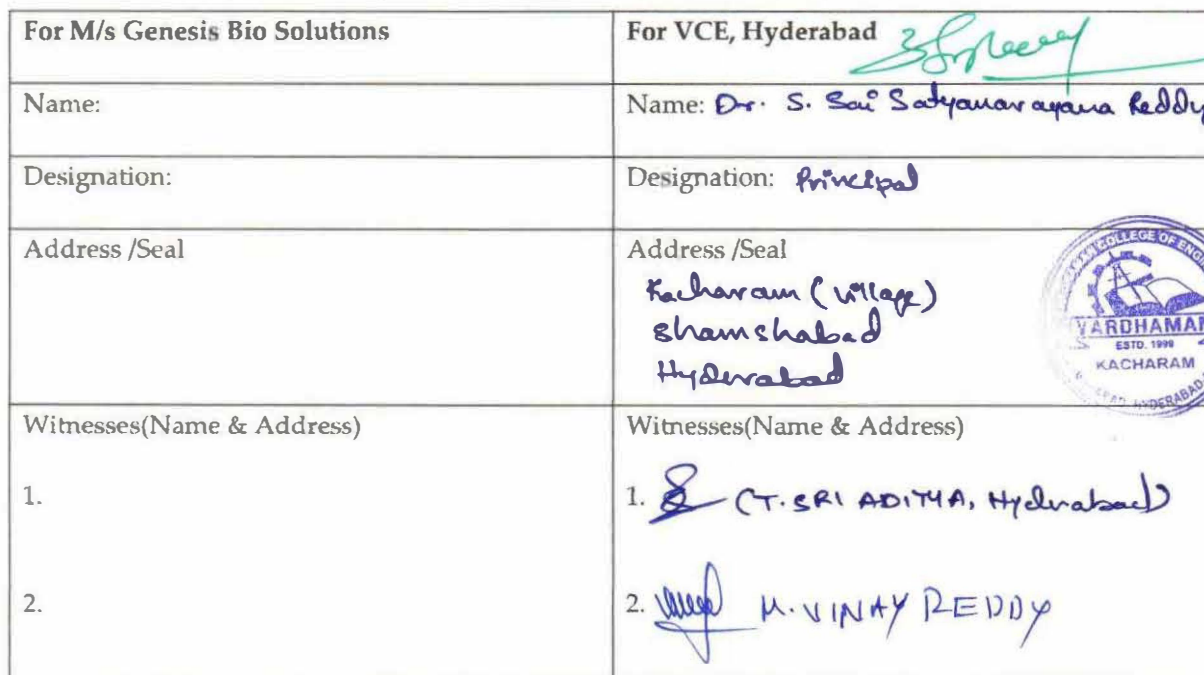 For M/s Genesis Bio Solutions
For VCE, Hyderabad
Name:
Name: Dr. S. Sai Satyanarayana Reddy
Designation:
Designation: Principal
Address /Seal
Address /Seal
Kacharam (village)
Shamshabad
Hyderabad
VARDHAMAN
ESTD. 1999
KACHARAM
Witnesses(Name & Address)
Witnesses(Name & Address)
1.
1. (T. SRI ADITYA, Hyderabad)
2.
2. M. VINAY REDDY